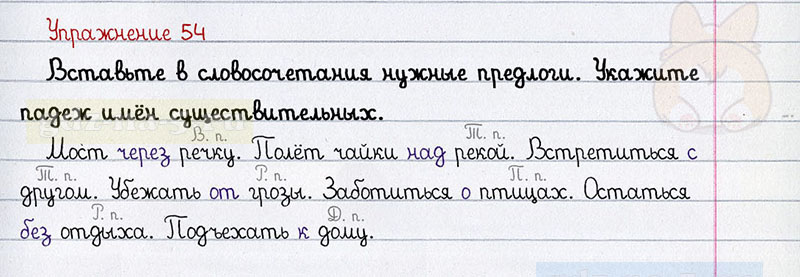 Упражнение 54
Вставьте в словосочетания нужные предлоги. Укажите
падеж имён существительных.
В. п. Т. п.
Мост через речку. Полёт чайки над рекой. Встретиться с
Т. п. Р. п. П. п.
другом. Убежать от грозы. Заботиться о птицах. Остаться
Р. п. Д. п.
без отдыха. Подъехать к дому.